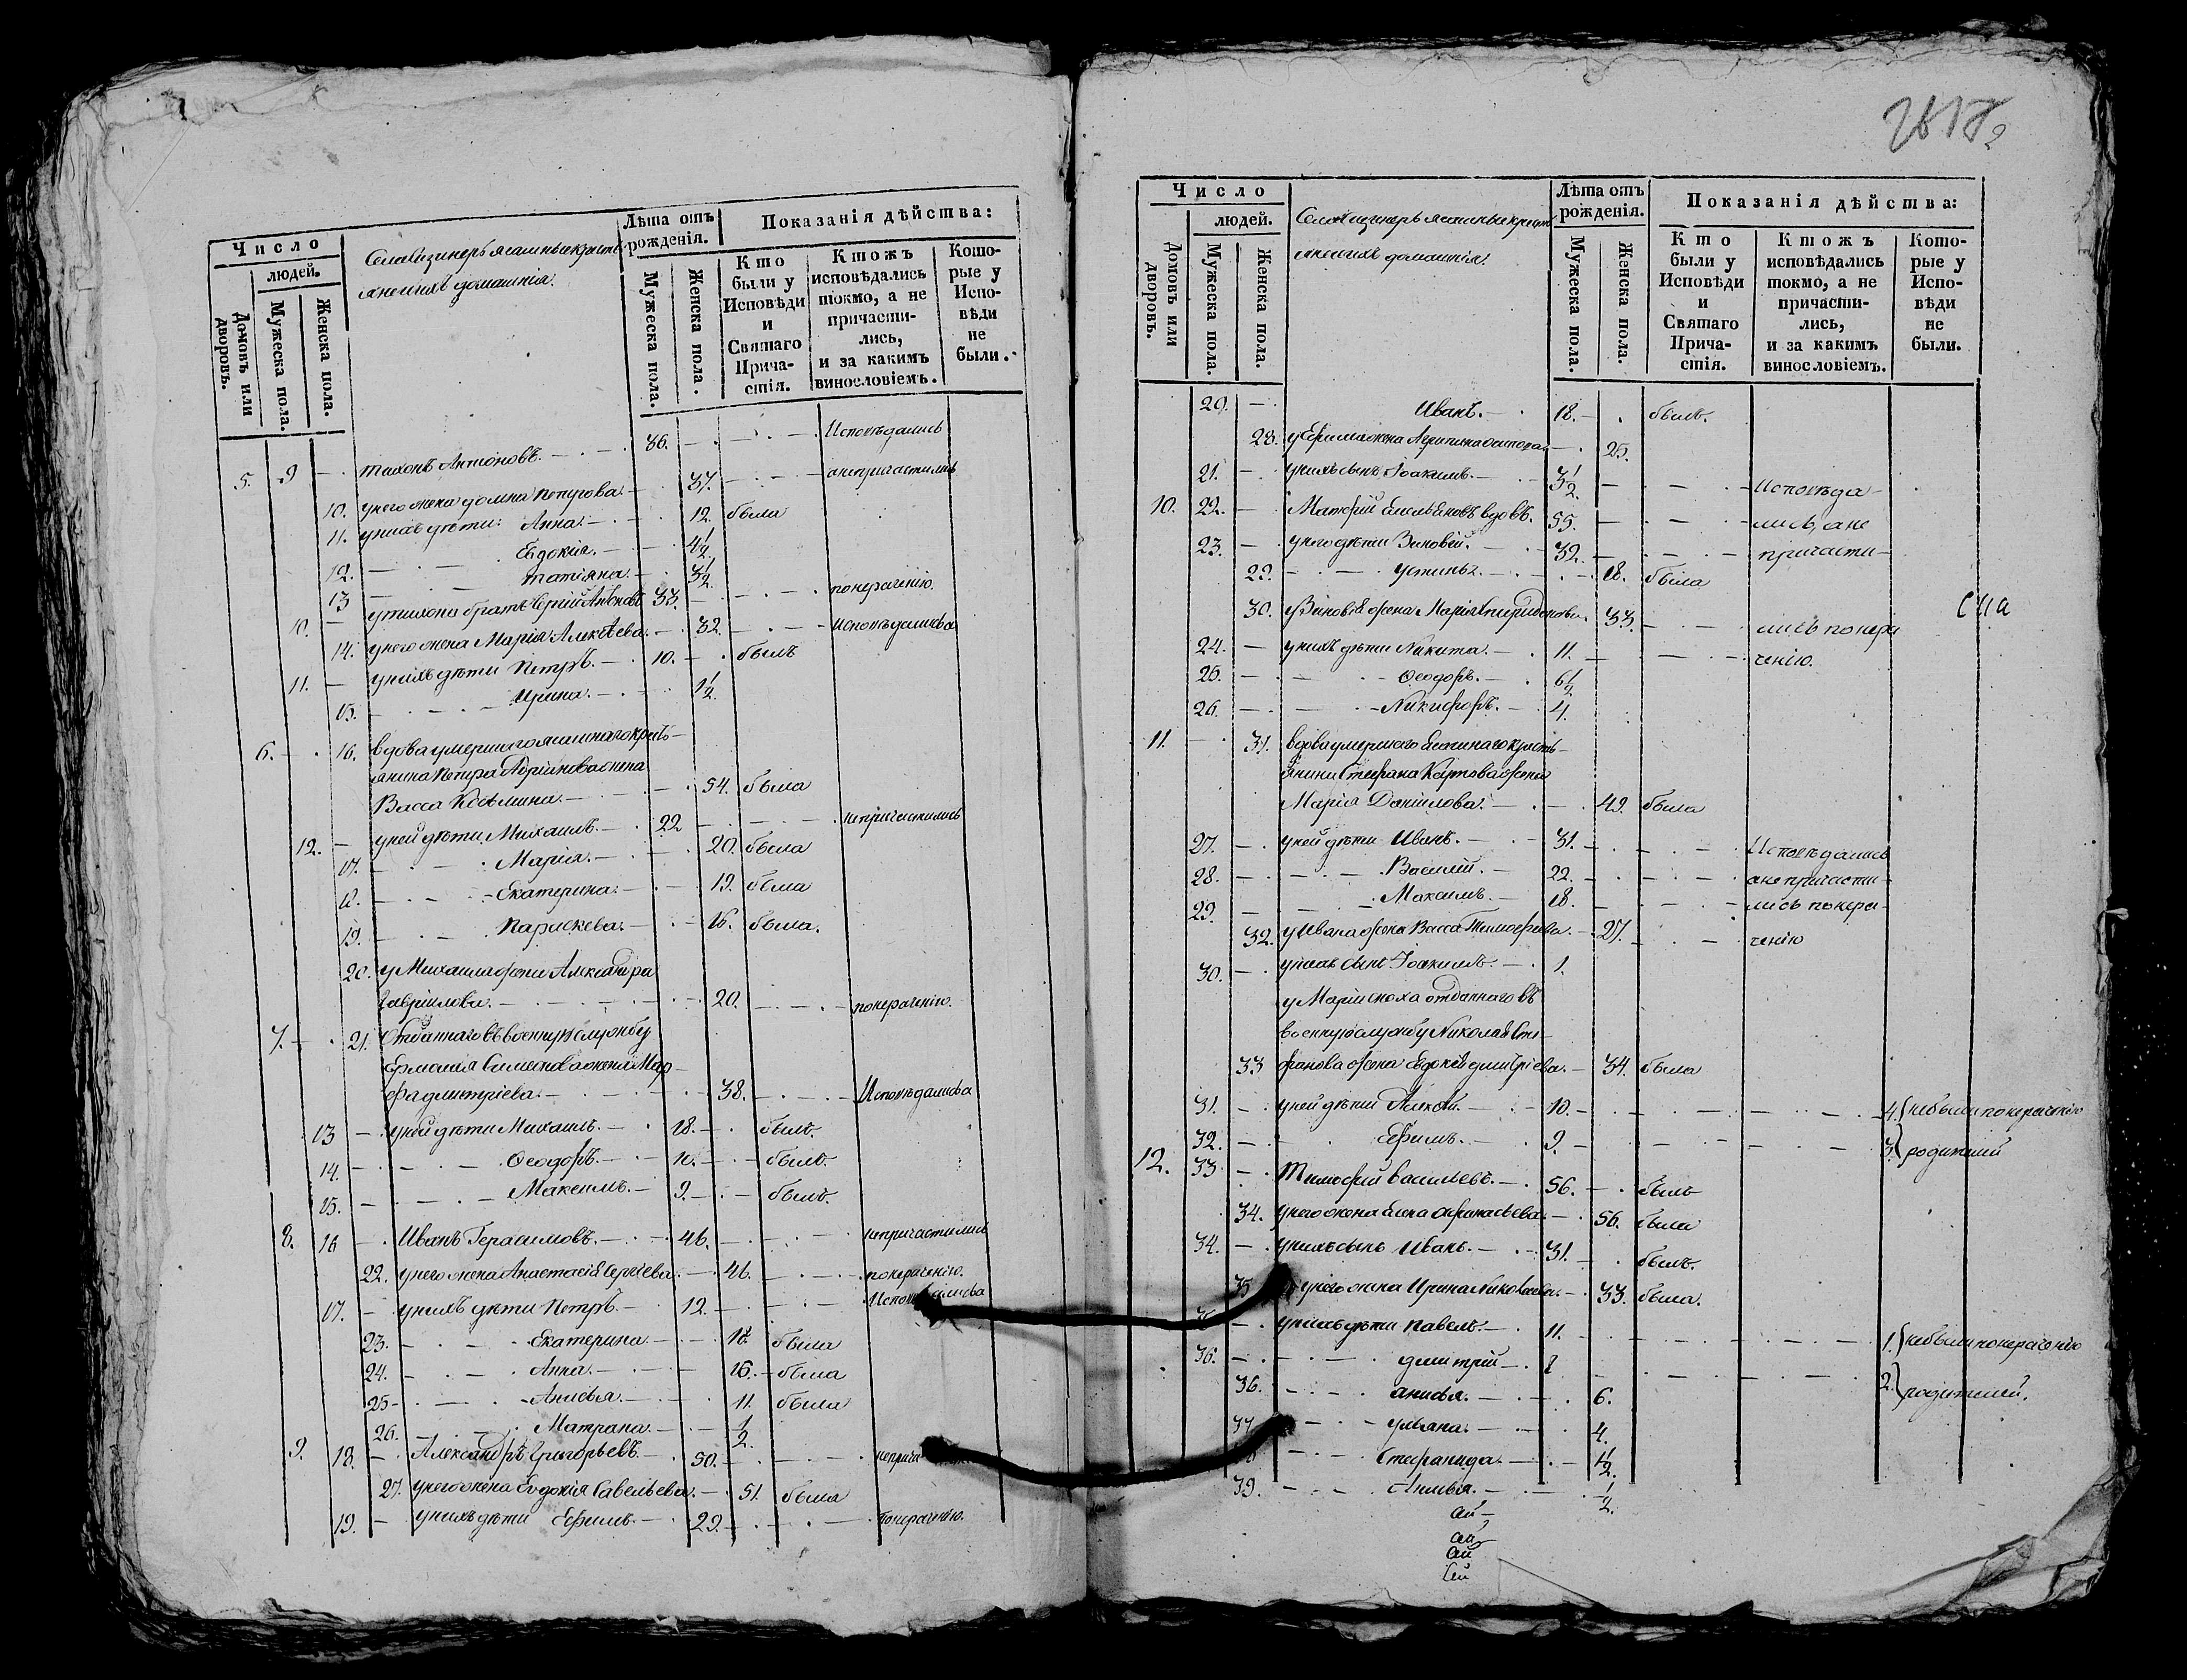 Число
людей.
Домовъ или дворовъ.
Мужеска пола.
Женска пола.
домашнія.
Лѣта отъ рожденія.
Мужеска пола.
Женска пола.
Показанія дѣйства:
Кто были у Исповѣди и Святаго Причастія.
Ктожъ исповѣдались токмо, а не причастились, и за какимъ винословіемъ.
Которые у Исповѣди не были.
5. 9 — Тихонъ Антоновъ. 36. Исповѣдались
10. у него жена Домна Петрова 37. а не причастились
11. у нихъ дѣти: Анна. 12. была
12. Евдокія. 4 1/2
13 Татіяна. 3 1/2
10. — у Тихона братъ Сергій Антоновъ 33. по нераченію.
14. у него жена Марія Алексѣева. 32. Исповѣдались а
11. — у нихъ дѣти Петръ. 10. былъ
15. Ирина. 1 1/2
6. — 16. вдова умершаго ясашнаго кресть-
янина Петра жена
Васса Козьмина. 54. была
12. — у ней дѣти Михаилъ. 22 не причастились
17. Марія. 20. была
18. Екатерина. 19. была
19. Параскева. 16. была.
20. у Михаила жена Александра
Гаврилова. 20. по нераченію.
7. — 21. Отданнаго въ военную службу
Ермолая Симеонова жена Мар-
фа Дмитріева. 38. Исповѣдались а
13 — у ней дѣти Михаилъ. 18. былъ.
14. Ѳеодоръ. 10. былъ.
15. Максимъ. 9. былъ.
8. 16 — Иванъ Герасимовъ. 46. не причастились
22. у него жена Анастасія Сергіева. 46. по нераченію.
17. — у нихъ дѣти Петръ. 12.
23. Екатерина. 18. была
24. Анна. 16. была
25 Анисья. 11. была
26. Матрона. 1/2
9. 18. — Александръ Григорьевъ. 50.
27. у него жена Евдокія Савельева. 51. была
19. — у нихъ дѣти Ефимъ. 29. по нераченію.
Число
людей.
Домовъ или дворовъ.
Мужеска пола.
Женска пола.
домашнія.
Лѣта отъ рожденія.
Мужеска пола.
Женска пола.
Показанія дѣйства:
Кто были у Исповѣди и Святаго Причастія.
Ктожъ исповѣдались токмо, а не причастились, и за какимъ винословіемъ.
Которые у Исповѣди не были.
20. — Иванъ. 18. былъ.
28. у Ефима жена 25.
21. — у нихъ сынъ Іоакимъ. 3 1/2 Исповѣда-
10. 22. — Матфій Емельяновъ вдовъ. 55. лись, а не
23. — у него дѣти Зиновій. 32. причасти-
29. Устинья. 18. была
30. у Зиновія жена Марія Спиридонова. 33. лись по нера
24. — у нихъ дѣти Никита. 11. ченію.
25. Ѳеодоръ. 6 1/2
26. Никифоръ. 4.
11. — 31. вдова умершаго ясашнаго кресть-
янина Стефана Карпова жена
Марія Данилова. 49. была
27. — у ней дѣти Иванъ. 31. Исповѣдались
28. Василій. 22. а не причасти-
29. Максимъ. 18. лись по нера-
32. у Ивана жена Васса Тимофеева. 27. ченію
30. — у нихъ сынъ Іоакимъ. 1.
у Маріи сноха отданнаго въ
военную службу Николая Сте-
33 фанова жена Евдокія Дмитріева. 34. была
31. — у ней дѣти Алексѣй. 10. 4. не были по нераченію
32. Ефимъ. 9. 3. родителей
12. 33. — Тимофей Васильевъ. 56. былъ
34. у него жена Елена Афанасьева. 56. была
34. — у нихъ сынъ Иванъ. 31. былъ.
35 у него жена Ирина Николаева. 33. была.
— у нихъ дѣти Павелъ. 11. 1. не были по нераченію
36. Дмитрій 8 2. родителей.
36. Анисья. 6.
37 Ульяна. 4.
Стефанида. 1 1/2
39. Анисья. 1/2